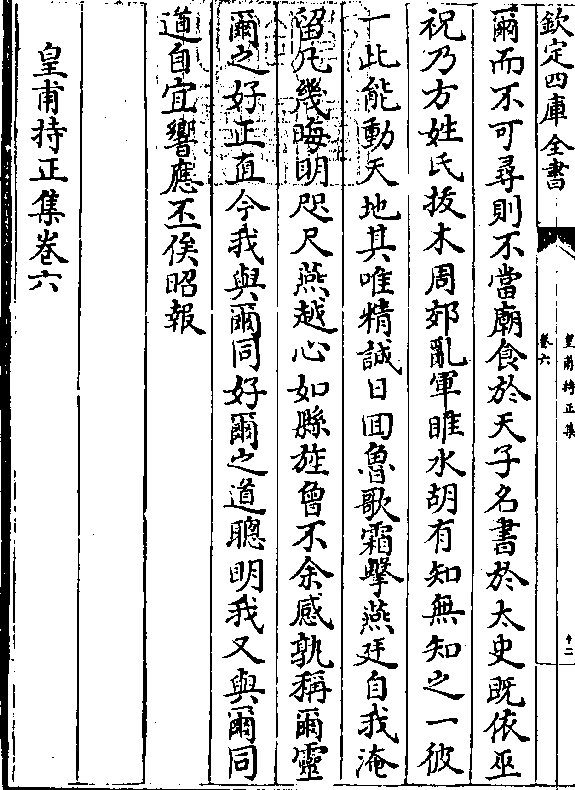 欽定四庫全書
皇甫持正集
卷六
十二
爾而不可尋則不當廟食於天子名書於太史既依巫
祝乃方姓氏拔木周郊亂軍睢水胡有知無知之一彼
一此能動天地其唯精誠日回魯歌霜擊燕廷自我淹
留凡幾晦明咫尺燕越心如縣旌曾不余感孰稱爾靈
爾之好正直今我與爾同好爾之道聰明我又與爾同
道自宜響應丕俟昭報
皇甫持正集卷六